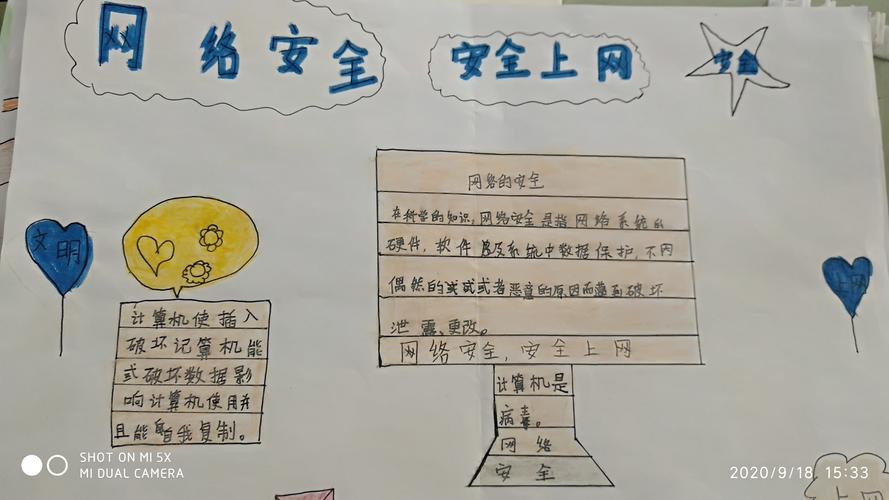 网络安全
安全上网
安全
文明
上网
计算机使插入
破坏记算机能
式破坏数据影
响计算机使用并
且能自我复制。
网络的安全
在科学的知识,网络安全是指网络系统的
硬件,软件及系统中数据保护,不内
偶然的或者恶意的原因而遭到破坏
泄露、更改。
网络安全,安全上网
计算机是
病毒。
网络
安全
上网
SHOT ON MI 5X
MI DUAL CAMERA
2020/9/18 15:33